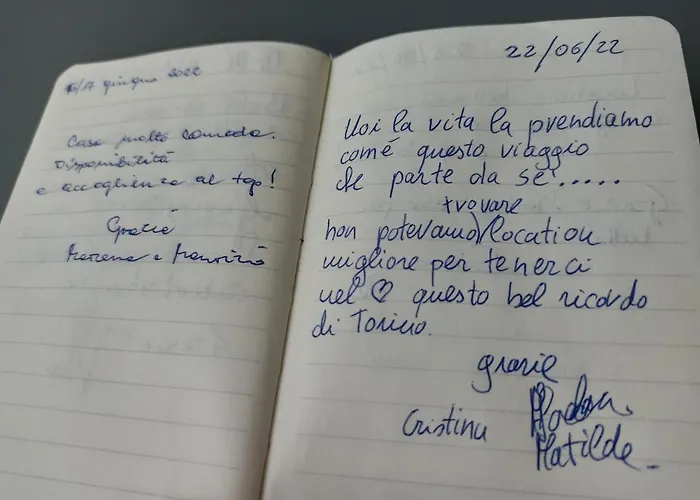 16/17 giugno 2022
Casa molto comoda.
Disponibilità
e accoglienza al top!
Grazie
e Maurizio
22/06/22
Noi la vita la prendiamo
comé questo viaggio
che parte da sé.....
trovare
non potevamo location
migliore per tenerci
nel ♡ questo bel ricordo
di Torino.
grazie
Cristina
Matilde.